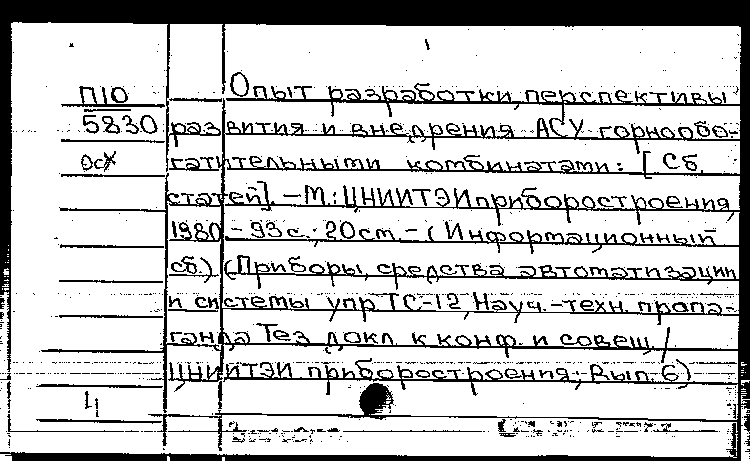 П10
5830
осх
Опыт разработки, перспективы
развития и внедрения АСУ горнообо-
гатительными комбинатами: [Сб.
статей]. – М.: ЦНИИТЭИприборостроения,
1980 – 93 с.; 20см. – (Информационный
сб.) (Приборы, средства автоматизации
и системы упр ТС-12, Науч.-техн. пропа-
ганда Тез докл. к конф. и совещ. /
ЦНИИТЭИ приборостроения; Вып. 6)